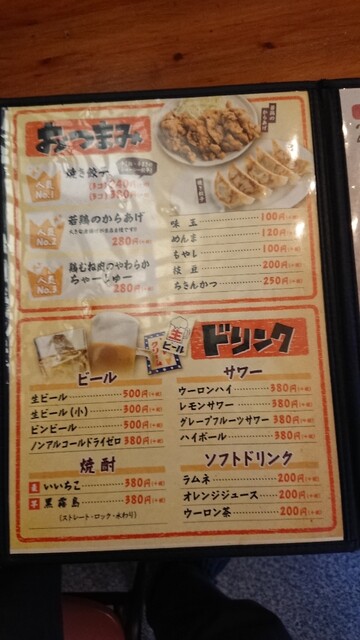 おつまみ
人気No.1
焼き餃子
人気No.2
若鶏のからあげ
280円(+税)
人気No.3
鶏むね肉のやわらか
ちゃーしゅー
280円(+税)
味玉 100円(+税)
めんま 120円(+税)
もやし 100円(+税)
枝豆 200円(+税)
ちきんかつ 250円(+税)
生ビール
ドリンク
ビール
生ビール 500円(+税)
生ビール(小) 300円(+税)
ビンビール 500円(+税)
ノンアルコールドライゼロ 380円(+税)
サワー
ウーロンハイ 380円(+税)
レモンサワー 380円(+税)
グレープフルーツサワー 380円(+税)
ハイボール 380円(+税)
焼酎
麦 いいちこ 380円(+税)
芋 黒霧島 380円(+税)
(ストレート・ロック・水わり)
ソフトドリンク
ラムネ 200円(+税)
オレンジジュース 200円(+税)
ウーロン茶 200円(+税)